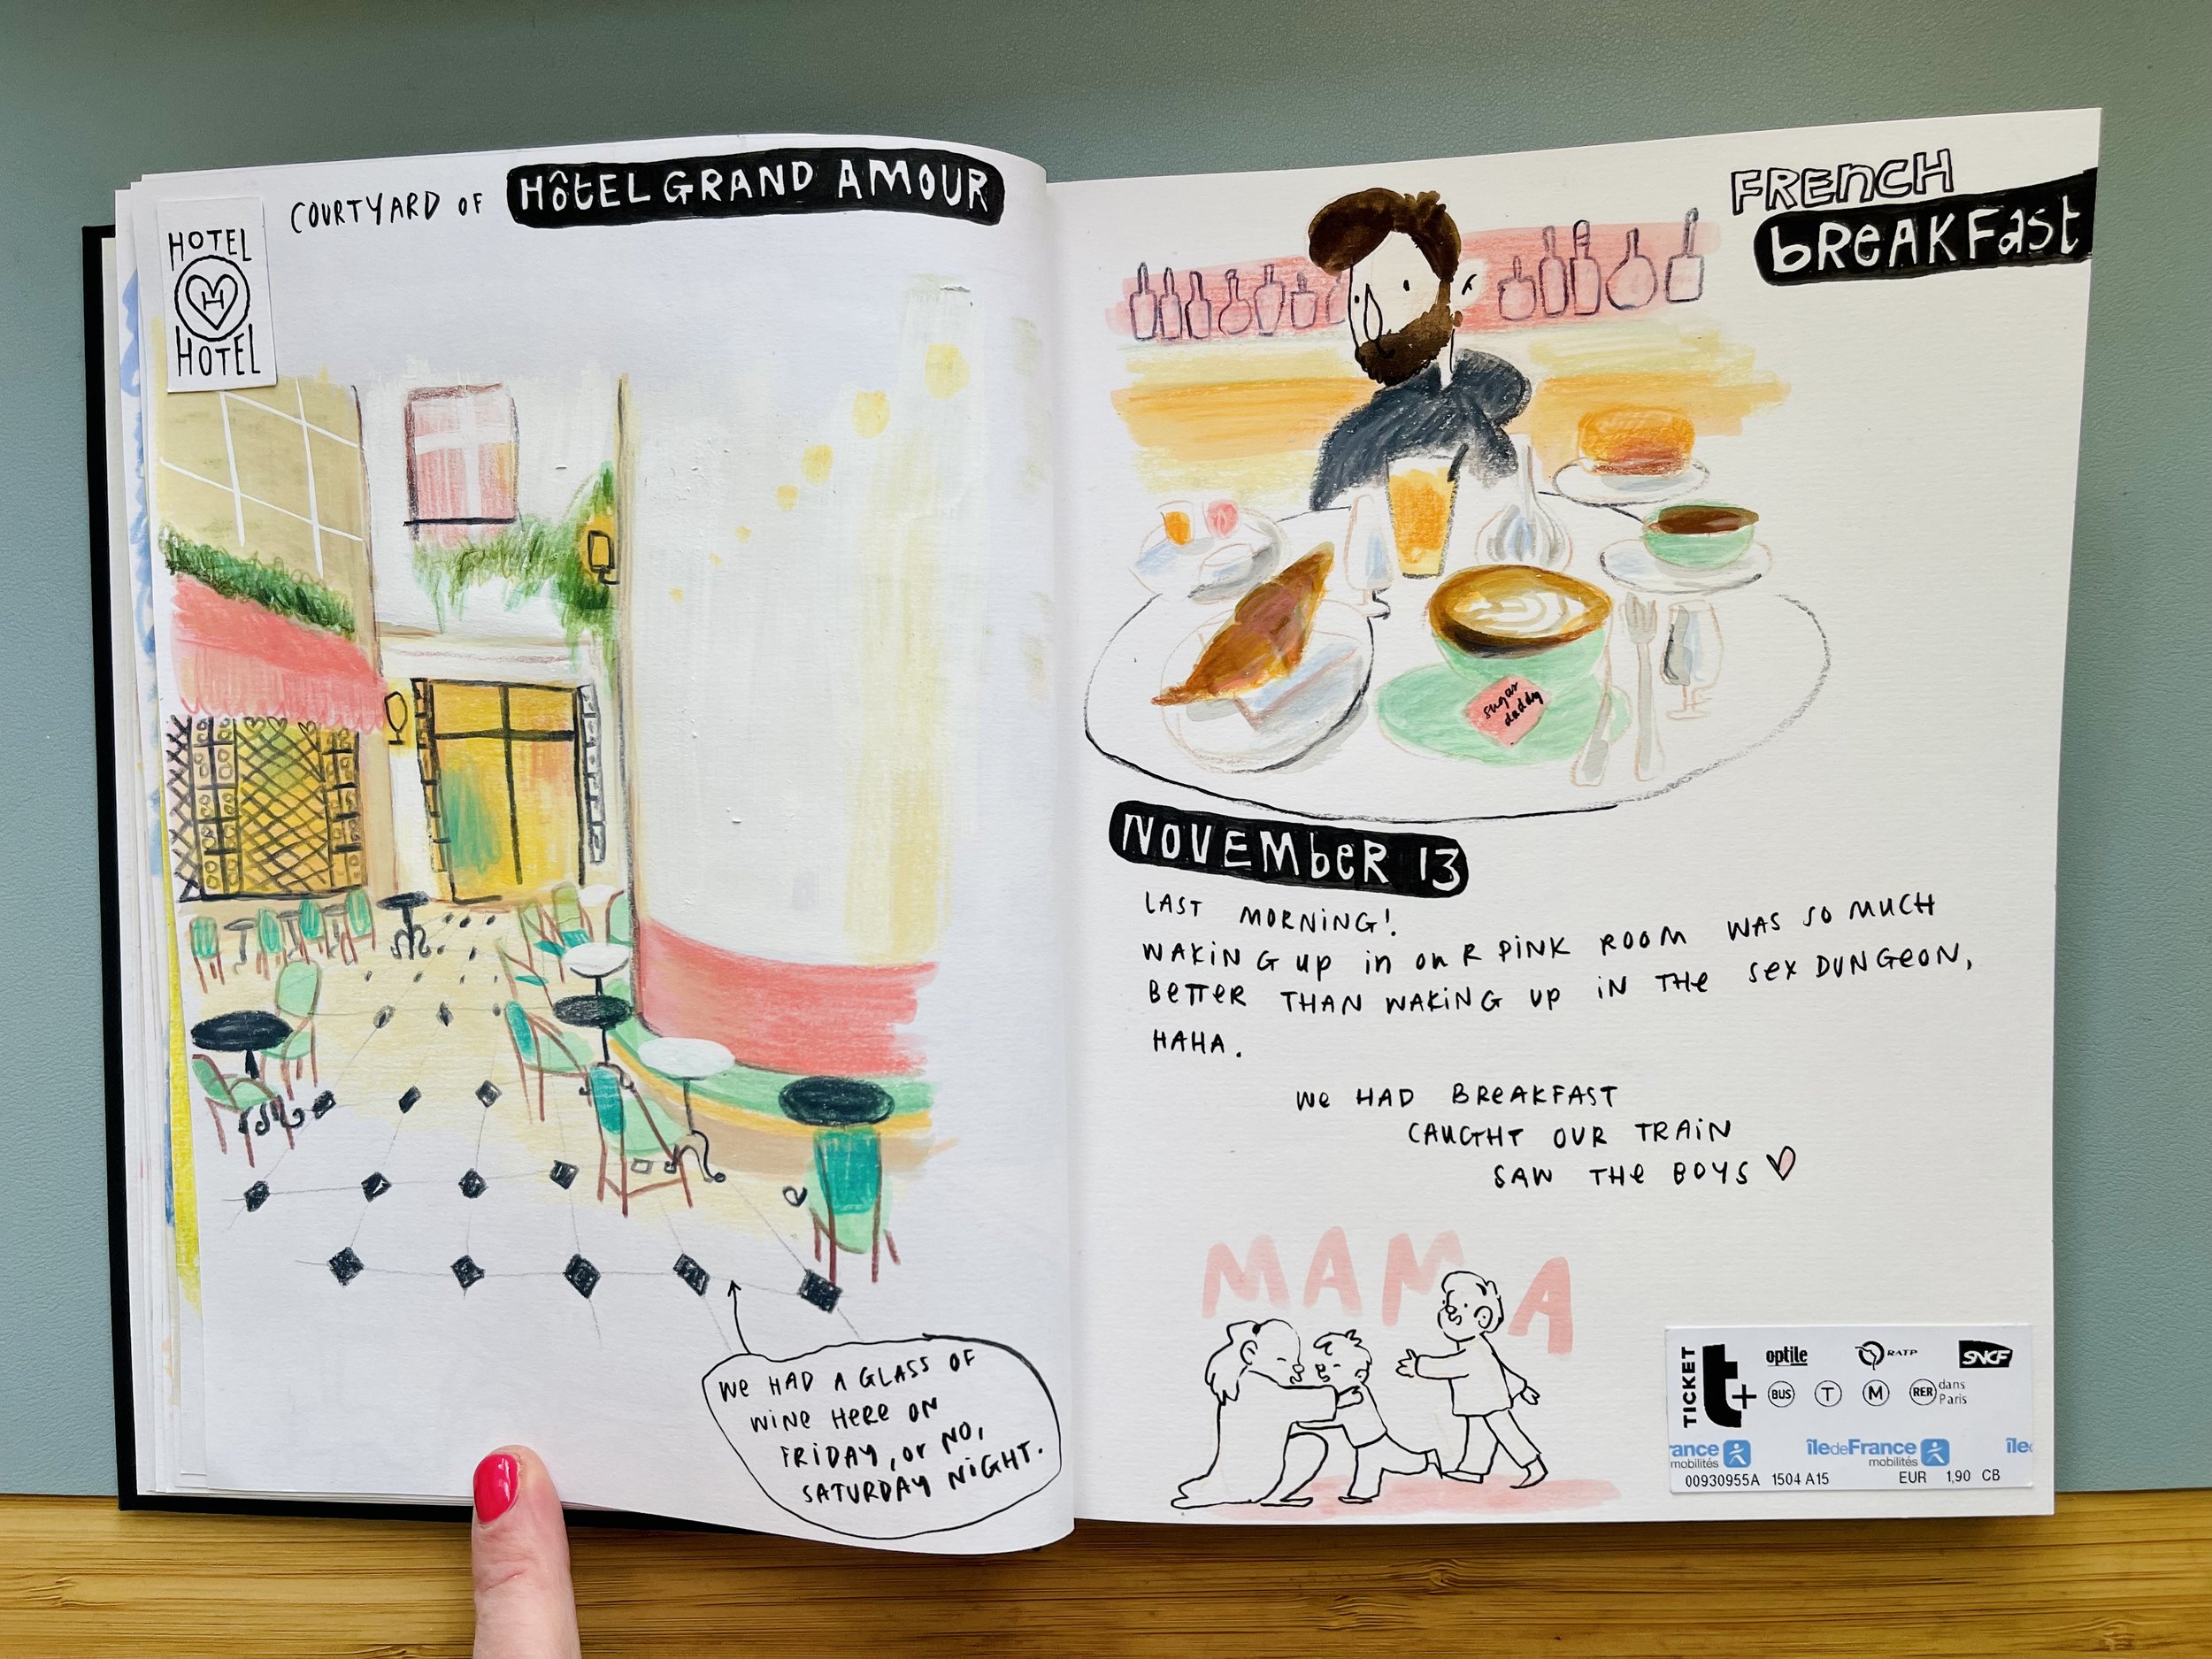 HOTEL
H
HOTEL
COURTYARD OF HôtEL GRAND AMOUR
WE HAD A GLASS OF
WINE HERE ON
FRIDAY, OR NO,
SATURDAY NIGHT.
FRENCH
bREAKFast
sugar
daddy
NOVEMbER 13
LAST MORNING!
WAKING UP IN OUR PINK ROOM WAS SO MUCH
BETTER THAN WAKING UP IN THE SEX DUNGEON,
HAHA.
WE HAD BREAKFAST
CAUGHT OUR TRAIN
SAW THE BOYS
MAMA
TICKET t+ optile RATP SNCF
BUS T M RER dans
Paris
rance îledeFrance île
mobilités mobilités
00930955A 1504 A15 EUR 1,90 CB